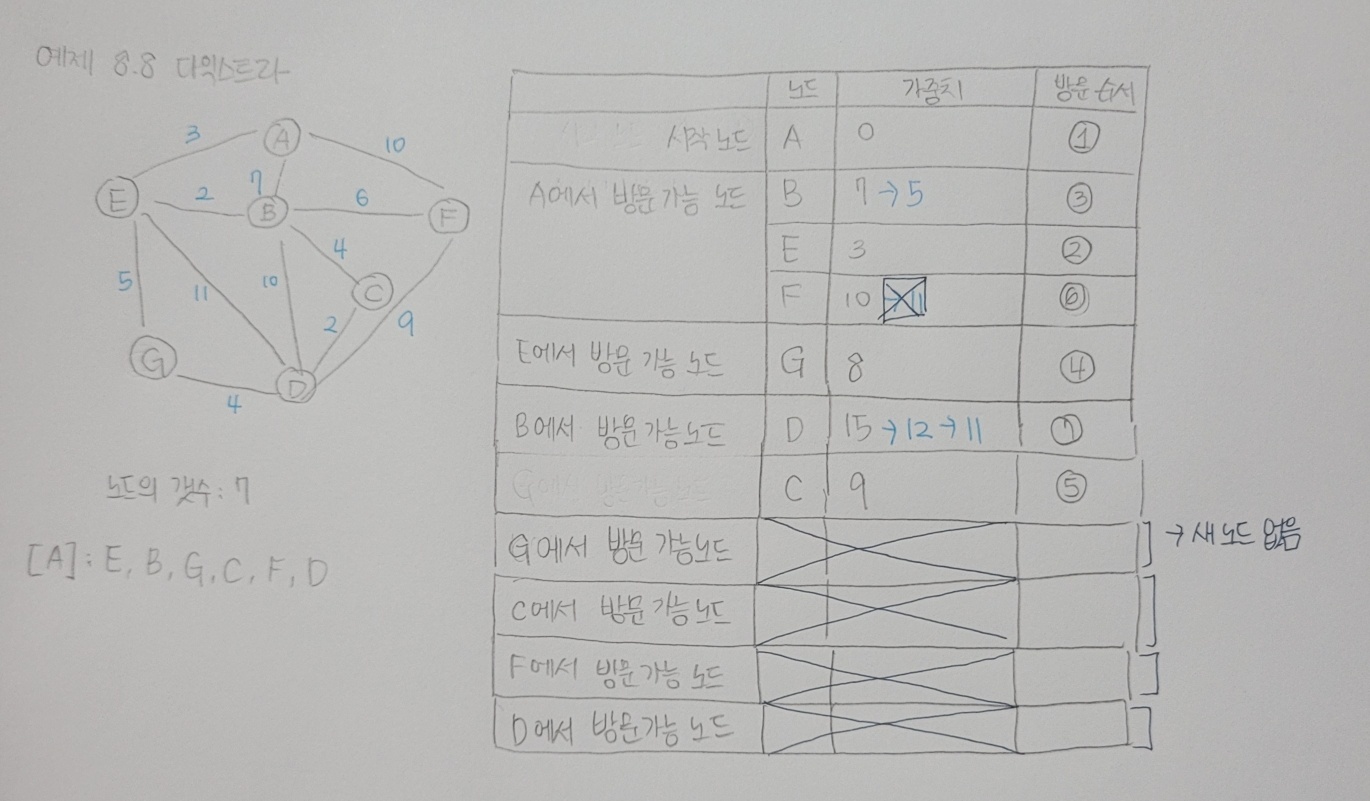 예제 8.8 다익스트라
3
A
10
E
2
7
B
6
F
4
5
11
10
C
2
9
G
D
4
노드의 갯수: 7
[A]: E, B, G, C, F, D
노드 가중치 방문 순서
시작 노드 A 0 ①
A에서 방문 가능 노드 B 7 → 5 ③
E 3 ②
F 10 ⑥
E에서 방문 가능 노드 G 8 ④
B에서 방문가능 노드 D 15 → 12 → 11 ⑦
C 9 ⑤
G에서 방문 가능노드 → 새 노드 없음
C에서 방문가능 노드
F에서 방문가능 노드
D에서 방문가능 노드